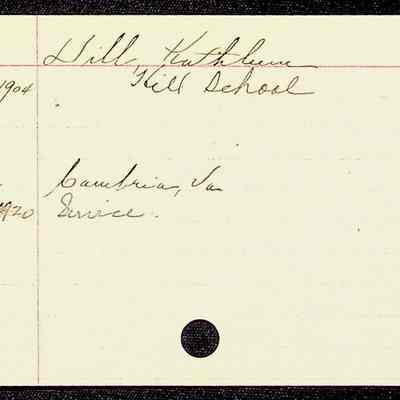 Hill, Kathleen
1904 Hill School
Cambria, Va
1920 Service.